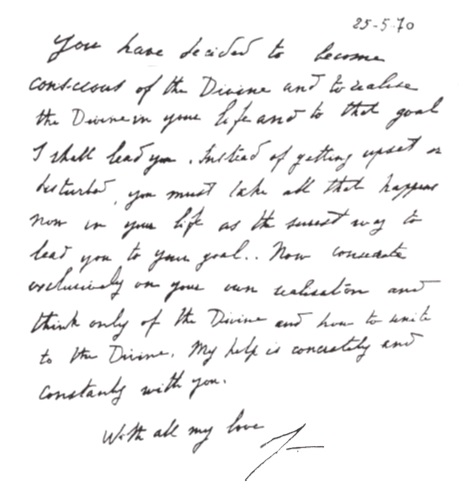 25-5-70
You have decided to become
conscious of the Divine and to realise
the Divine in your life and to that goal
I shall lead you. Instead of getting upset or
disturbed, you must take all that happens
now in your life as the surest way to
lead you to your goal.. Now concentrate
exclusively on your own realisation and
think only of the Divine and how to unite
to the Divine. My help is concretely and
constantly with you.
With all my love